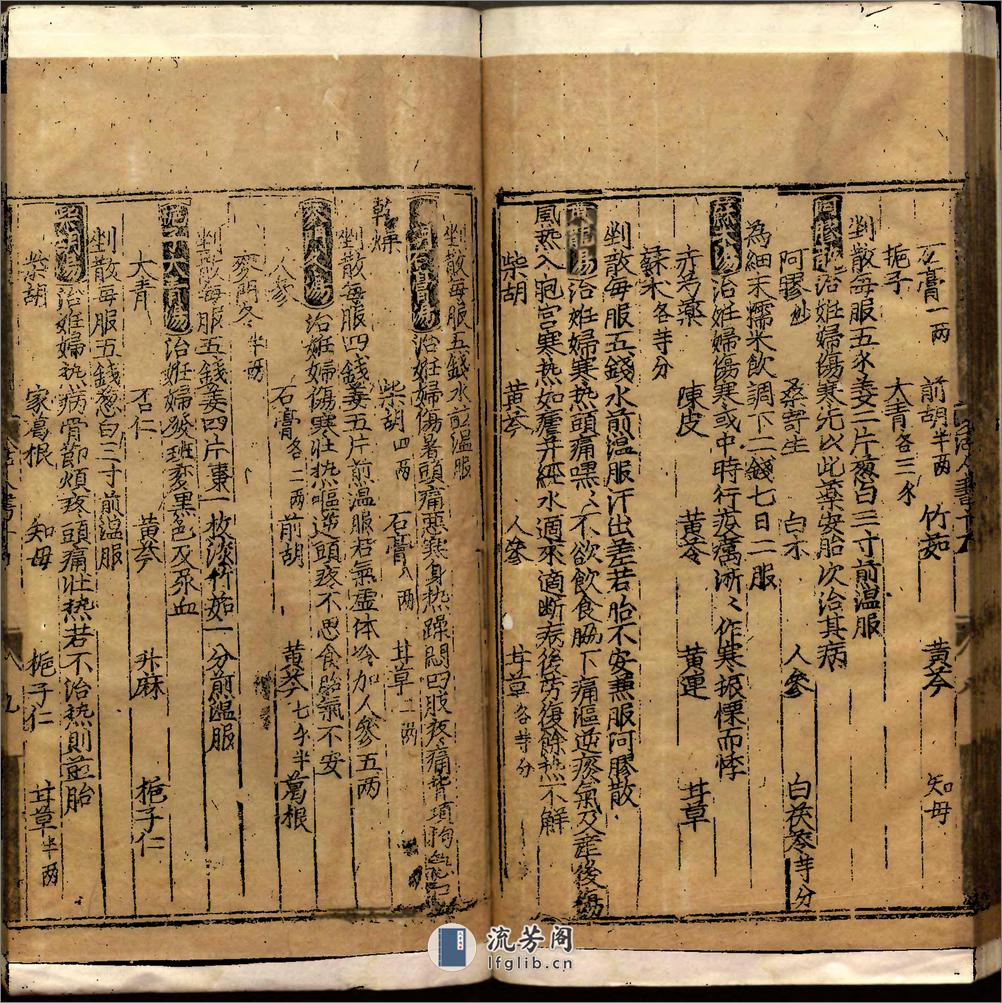 石膏一两 前胡半两 竹茹 黄芩 知母
栀子 大青各三分
剉散每服五分姜三片葱白三寸煎温服
治妊婦傷寒先以此薬安胎次治其病
阿膠炒 桑寄生 白朮 人參 白茯苓等分
為細末糯米飲調下二錢七日二服
蘇木湯治妊婦傷寒或中時行疫癘淅〻作寒振慄而悸
赤芍薬 陳皮 黄芩 黄連 甘草
蘇木各等分
剉散每服五錢水煎温服汗出差若胎不安兼服阿膠散
黄龍湯治妊婦寒热頭痛嘿〻不欲飲食脇下痛嘔逆痰氣及産後傷
風热入胞宫寒热如瘧并經水適來適断病後労復餘热不解
柴胡 黄芩 人參 甘草各等分
剉散每服五錢水煎温服
石膏湯治妊婦傷暑頭痛惡寒身热躁悶四肢疼痛背項拘急口
乾燥
柴胡四两 石膏八两 甘草二两
剉散每服四錢姜五片煎温服若氣虚体冷加人參五两
麥門冬湯治妊婦傷寒壮热嘔逆頭疼不思食胎氣不安
人參 石膏各二两 前胡 黄芩七半 葛根
麥門冬半两
剉散每服五錢姜四片棗一枚淡竹茹一分煎温服
栀子大青湯治妊婦發班变黒色及尿血
大青 杏仁 黄芩 升麻 栀子仁
剉散每服五錢葱白三寸煎温服
柴胡湯治妊婦热病骨節煩疼頭痛壮热若不治热則盛胎
柴胡 家葛根 知母 栀子仁 甘草半两
九
流芳阁
lfglib.cn